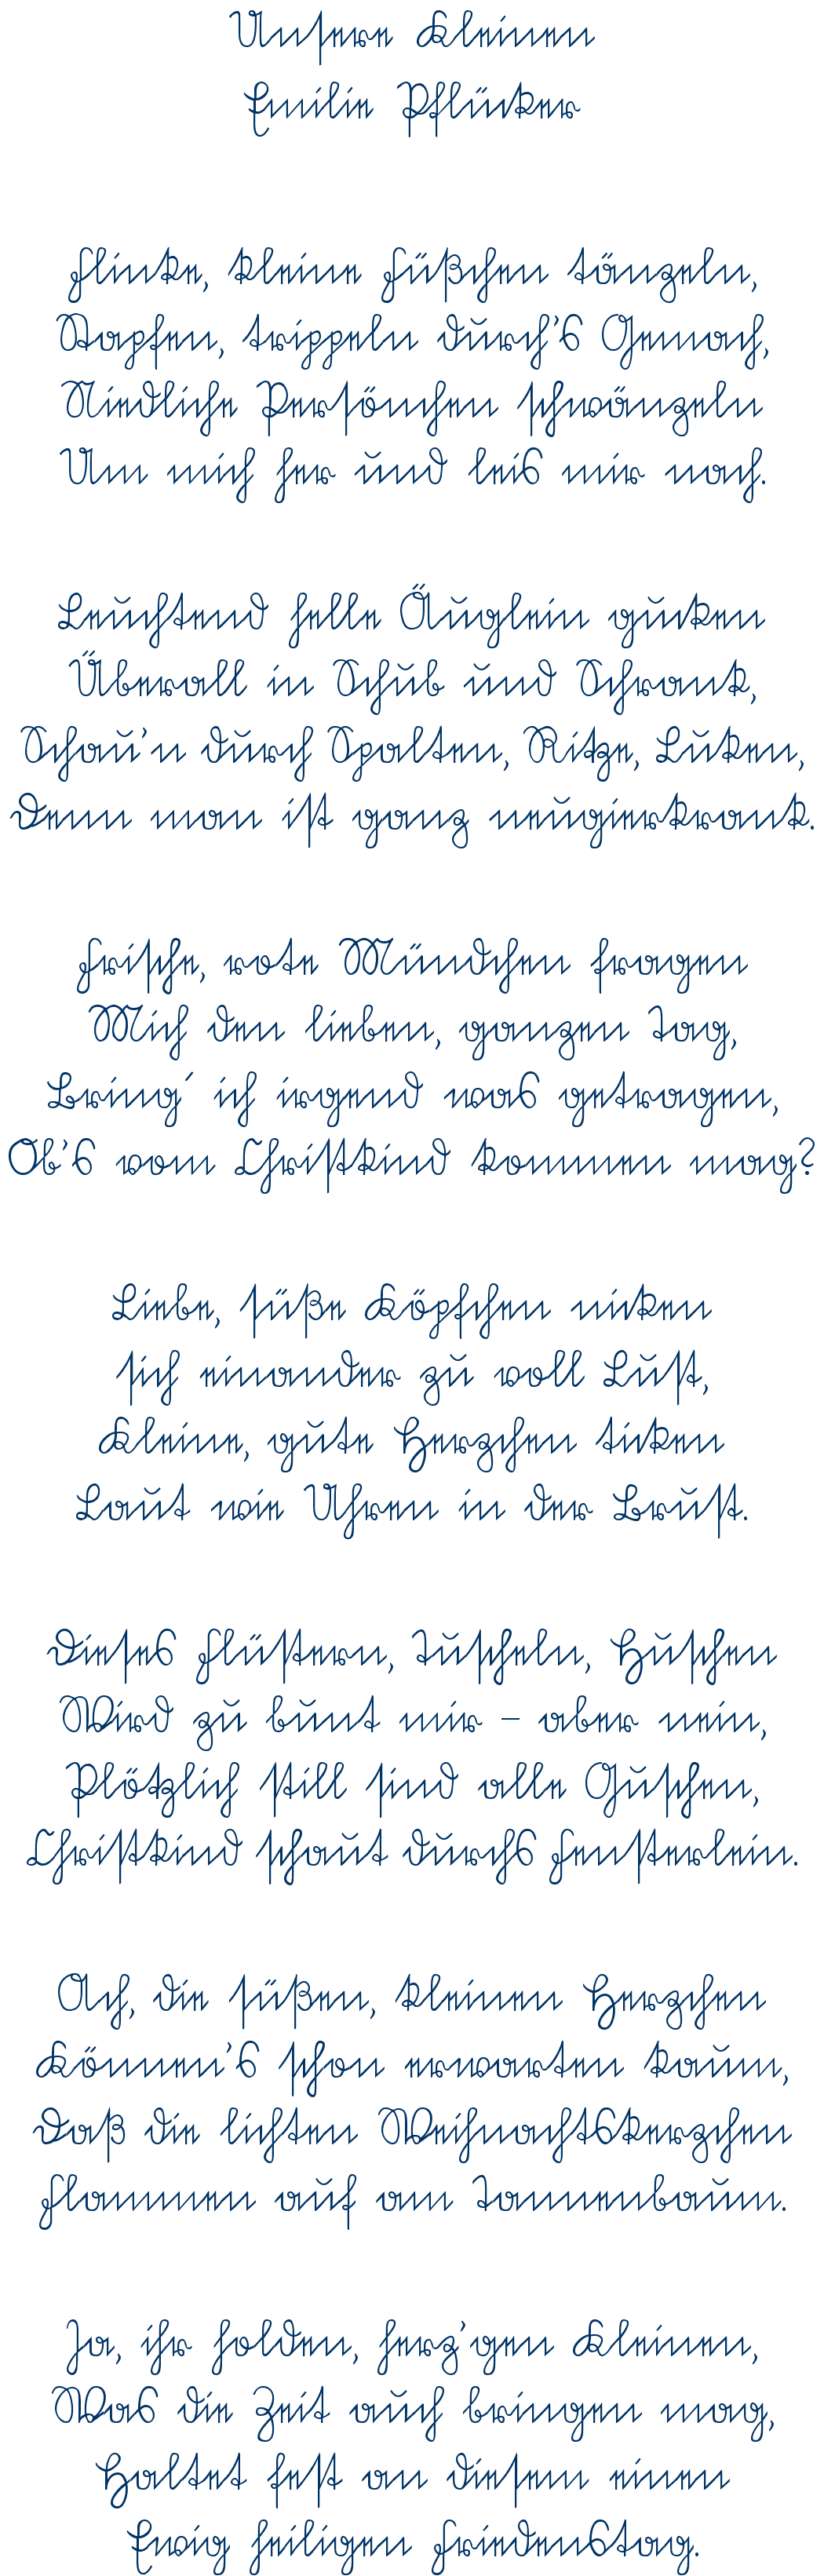 Unsere Kleinen
Emilie Pflücker
Flinke, kleine Füßchen tänzeln,
Stapfen, trippeln durch's Gemach,
Niedliche Persönchen schwänzeln
Um mich her und leis mir nach.
Leuchtend helle Äuglein gucken
Überall in Schub und Schrank,
Schau'n durch Spalten, Ritze, Luken,
Denn man ist ganz neugierkrank.
Frische, rote Mündchen fragen
Mich den lieben, ganzen Tag,
Bring´ ich irgend was getragen,
Ob's vom Christkind kommen mag?
Liebe, süße Köpfchen nicken
sich einander zu voll Lust,
Kleine, gute Herzchen ticken
Laut wie Uhren in der Brust.
Dieses Flüstern, Tuscheln, Huschen
Wird zu bunt mir – aber nein,
Plötzlich still sind alle Guschen,
Christkind schaut durchs Fensterlein.
Ach, die süßen, kleinen Herzchen
Können's schon erwarten kaum,
Daß die lichten Weihnachtskerzchen
Flammen auf am Tannenbaum.
Ja, ihr holden, herz'gen Kleinen,
Was die Zeit auch bringen mag,
Haltet fest an diesem einen
Ewig heiligen Friedenstag.